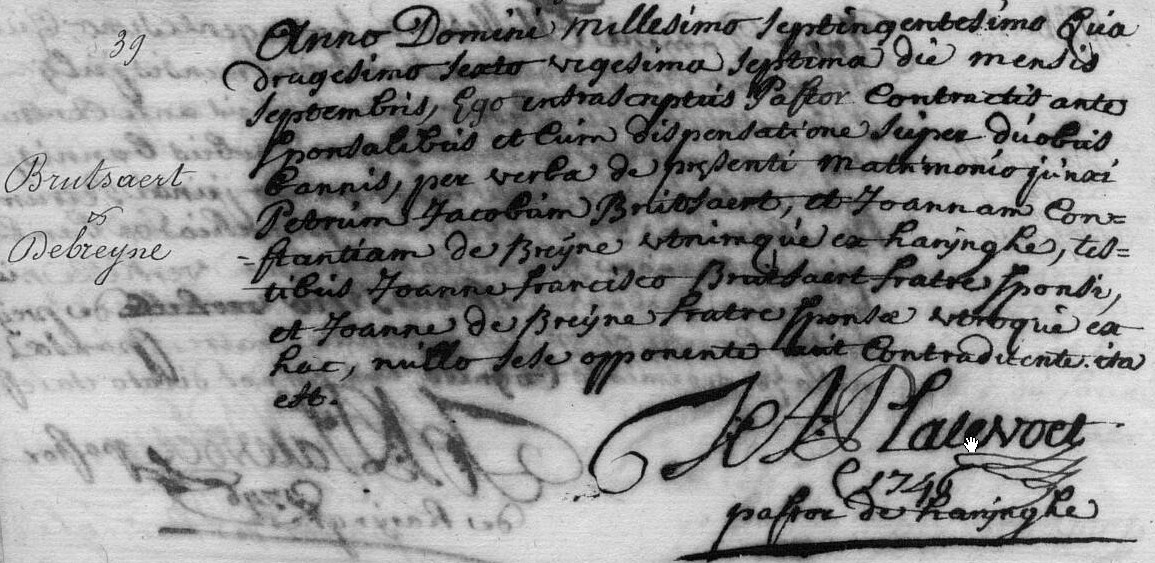 39
Anno Domini millesimo septingentesimo Qua
dragesimo sexto vigesima septima die mensis
septembris, Ego infrascriptus Pastor Contractis ante
sponsalibus et cum dispensatione super duobus
bannis, per verba de presenti matrimonio junxi
Brutsaert
&
Debreyne
Petrum Jacobum Brutsaert, et Joannam Con=
=stantiam de Breÿne utrumque ex harÿnghe, tes=
tibus Joanne francisco Brutsaert fratre sponsi,
et Joanne de Breÿne fratre sponsæ utroque ex
hac, nullo sese opponente aut Contradicente. ita
est.
Platevoet
1746
pastor de harÿnghe